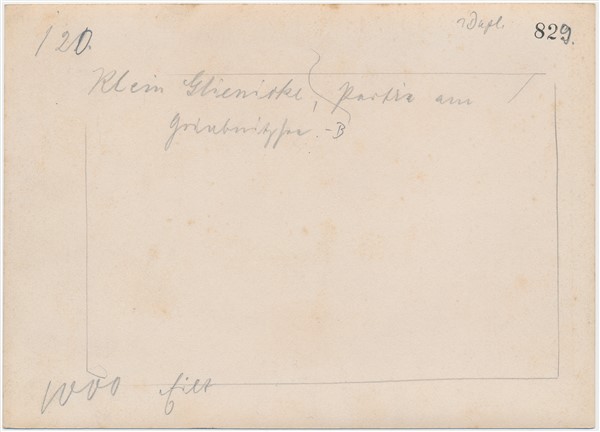 120.
829.
Klein Glienicke, Partie am
Griebnitzsee. - B
1000 Eilt